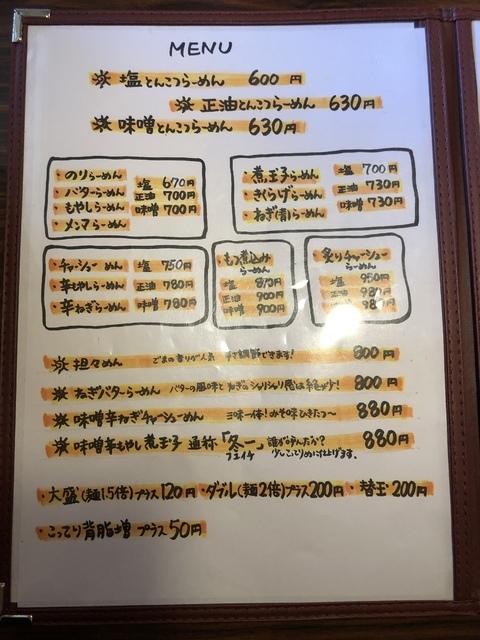 MENU
塩とんこつらーめん 600円
正油とんこつらーめん 630円
味噌とんこつらーめん 630円
・のりらーめん
・バターらーめん
・もやしらーめん
・メンマらーめん
塩 670
正油 700円
味噌 700
・煮玉子らーめん
・きくらげらーめん
・ねぎ(青)らーめん
塩 700円
正油 730円
味噌 730円
・チャーシューめん 塩 750円
・辛もやしらーめん 正油 780円
・辛ねぎらーめん 味噌 780円
・もつ煮込み
らーめん
塩 870円
正油 900円
味噌 900円
・炙りチャーシュー
らーめん
塩 950円
正油 980円
980円
担々めん ごまの香りが人気 辛さ調節できます! 800円
ねぎバターらーめん バターの風味とねぎのシャリシャリ感は絶妙! 800円
味噌辛ねぎチャーシューめん 三味一体!みそ味ひきたつ〜 880円
味噌辛もやし煮玉子 通称「冬一」 誰が呼んだか? 880円
フユイチ 少しこってりめに仕上げます。
・大盛(麺1.5倍)プラス120円 ・ダブル(麺2倍)プラス200円 ・替玉200円
・こってり背脂増 プラス50円